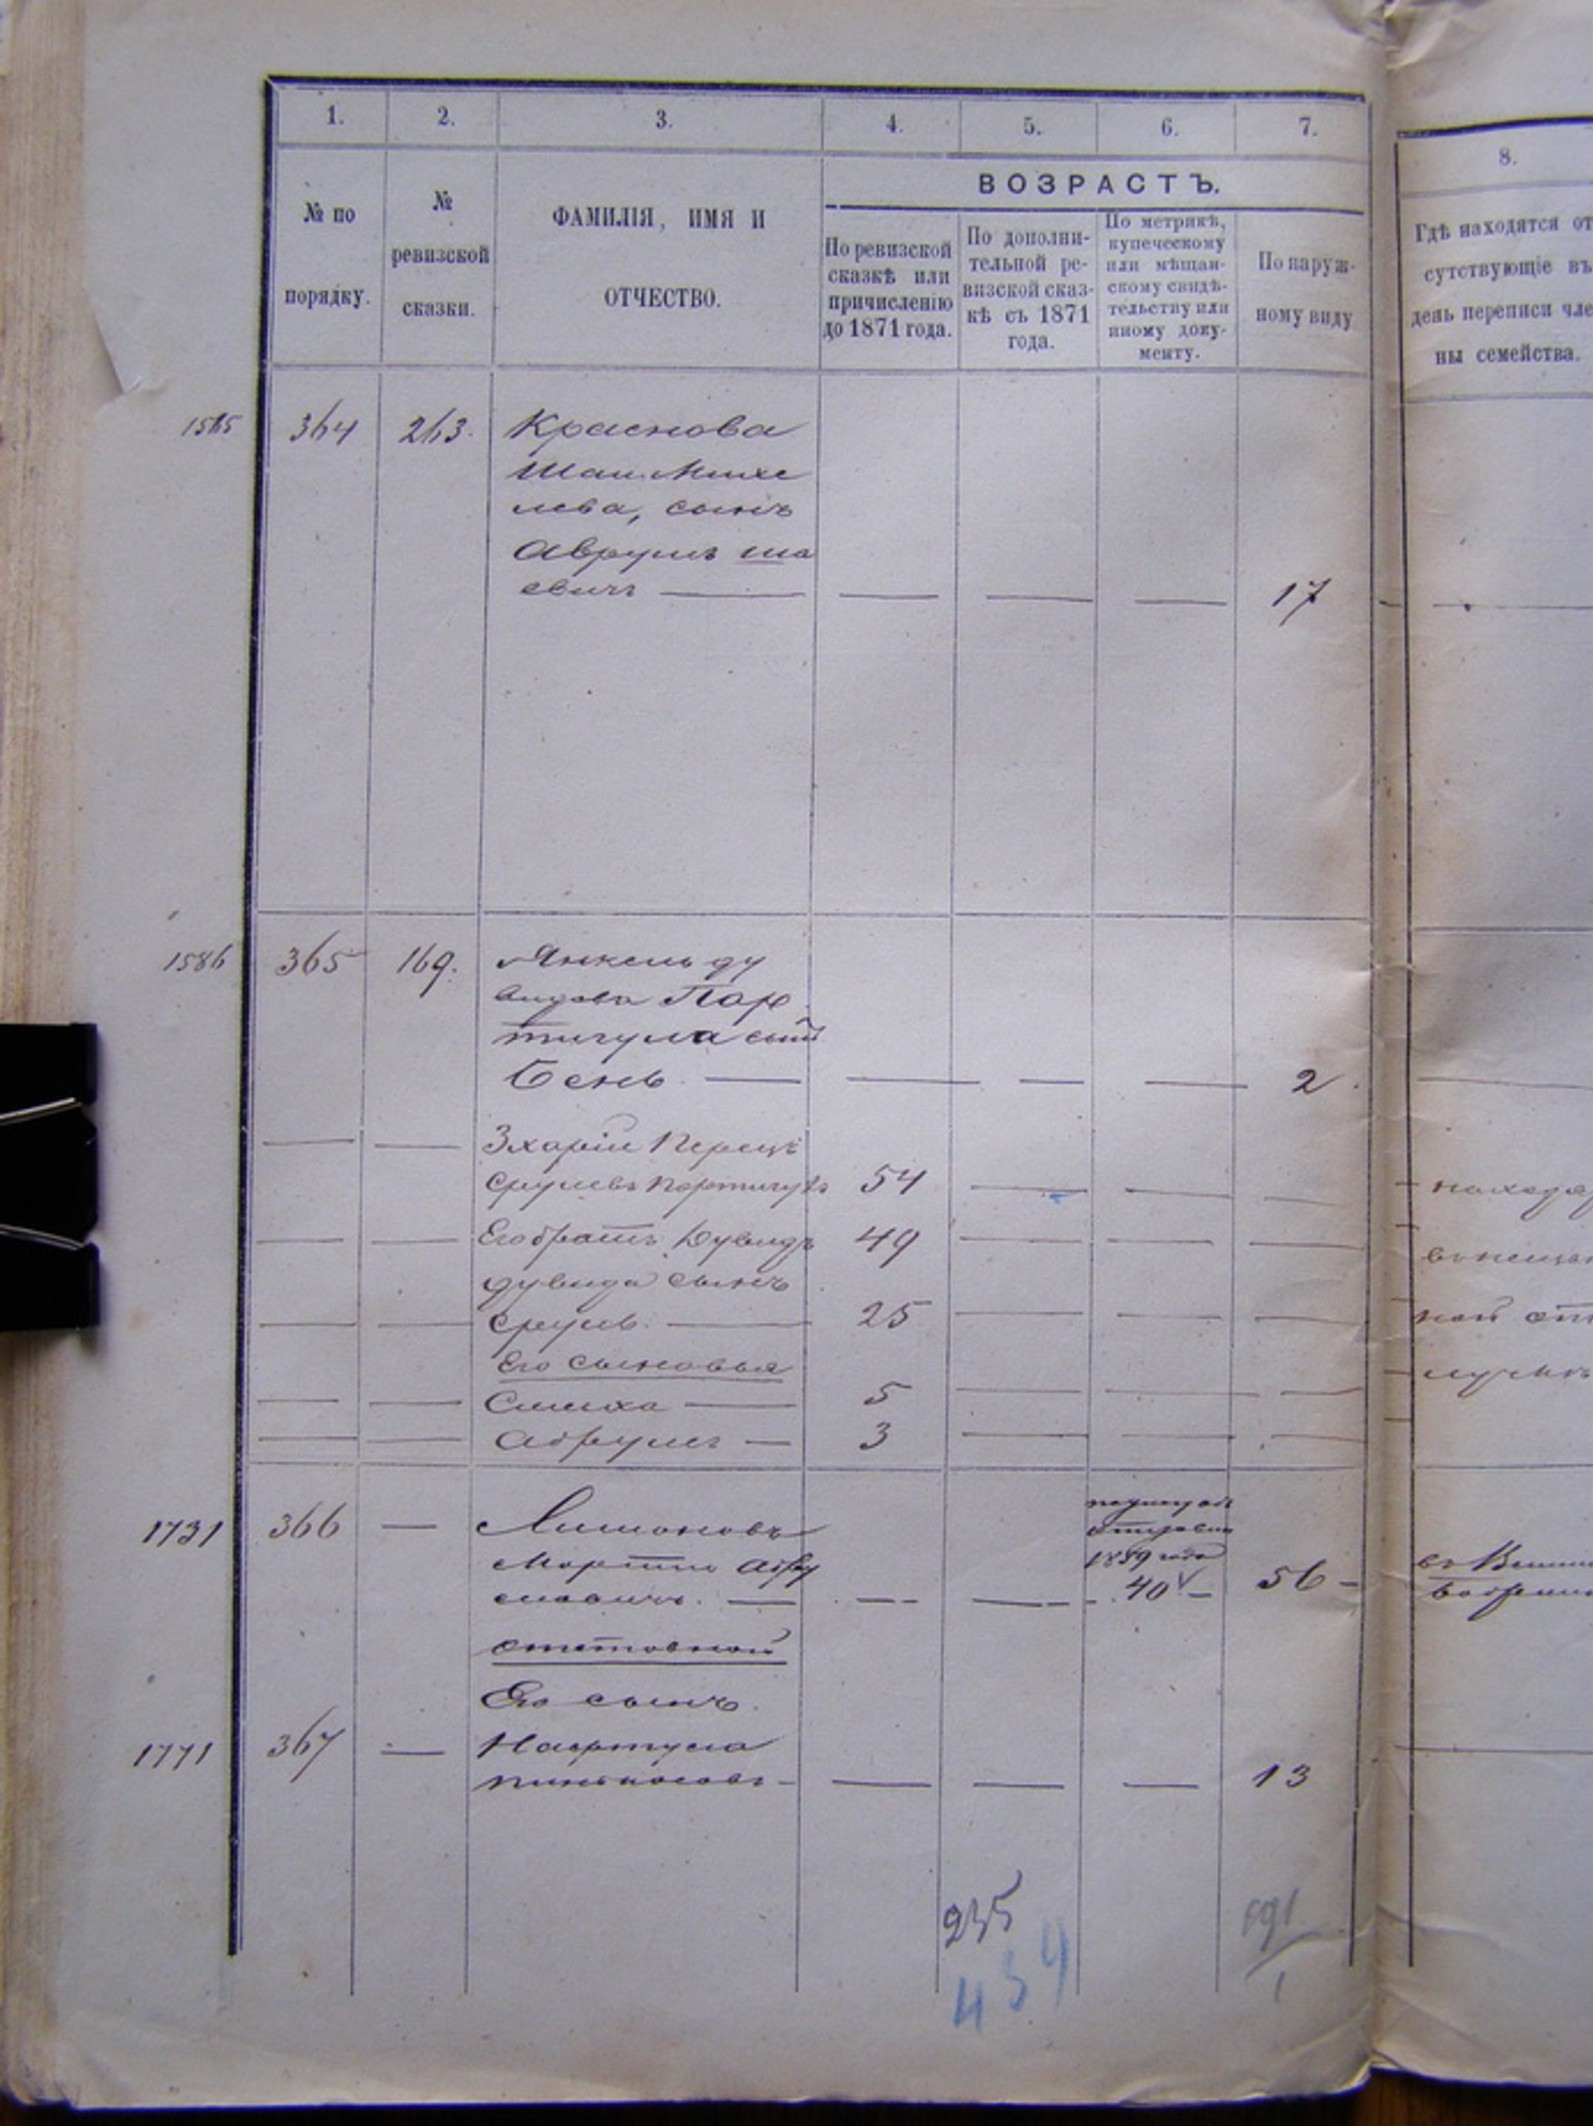 1. 2. 3. 4. 5. 6. 7. 8.
№ по порядку.
№ ревизской сказки.
ФАМИЛІЯ, ИМЯ И
ОТЧЕСТВО.
ВОЗРАСТЪ.
По ревизской
сказкѣ или
причисленію
до 1871 года.
По дополни-
тельной ре-
визской сказ-
кѣ съ 1871
года.
По метрикѣ,
купеческому
или мѣщан-
скому свидѣ-
тельству или
иному доку-
менту.
По наруж-
ному виду
Гдѣ находятся от
сутствующіе въ
день переписи чле
ны семейства.
1565 364 263. Краснова
Шаи Михе
лева, сынъ
Аврумъ Ша
евичъ — — — — 17
1586 365 169. Янкель Ду
видова Пар
тигула сынъ
Бень — — — — 2
— — Зхарія Перецъ
Срулевъ Портигулъ 54 — — —
— — Его братъ Дувидъ 49 — — —
Дувида сынъ
— — Сруль — 25 — — —
Его сыновья
— — Симха — 5 — — —
— — Абрумъ — 3 — — —
1859 года
1731 366 — Лимоновъ
40 — 56 —
отставной
Его сынъ.
1771 367 —
— — — 13
235
439